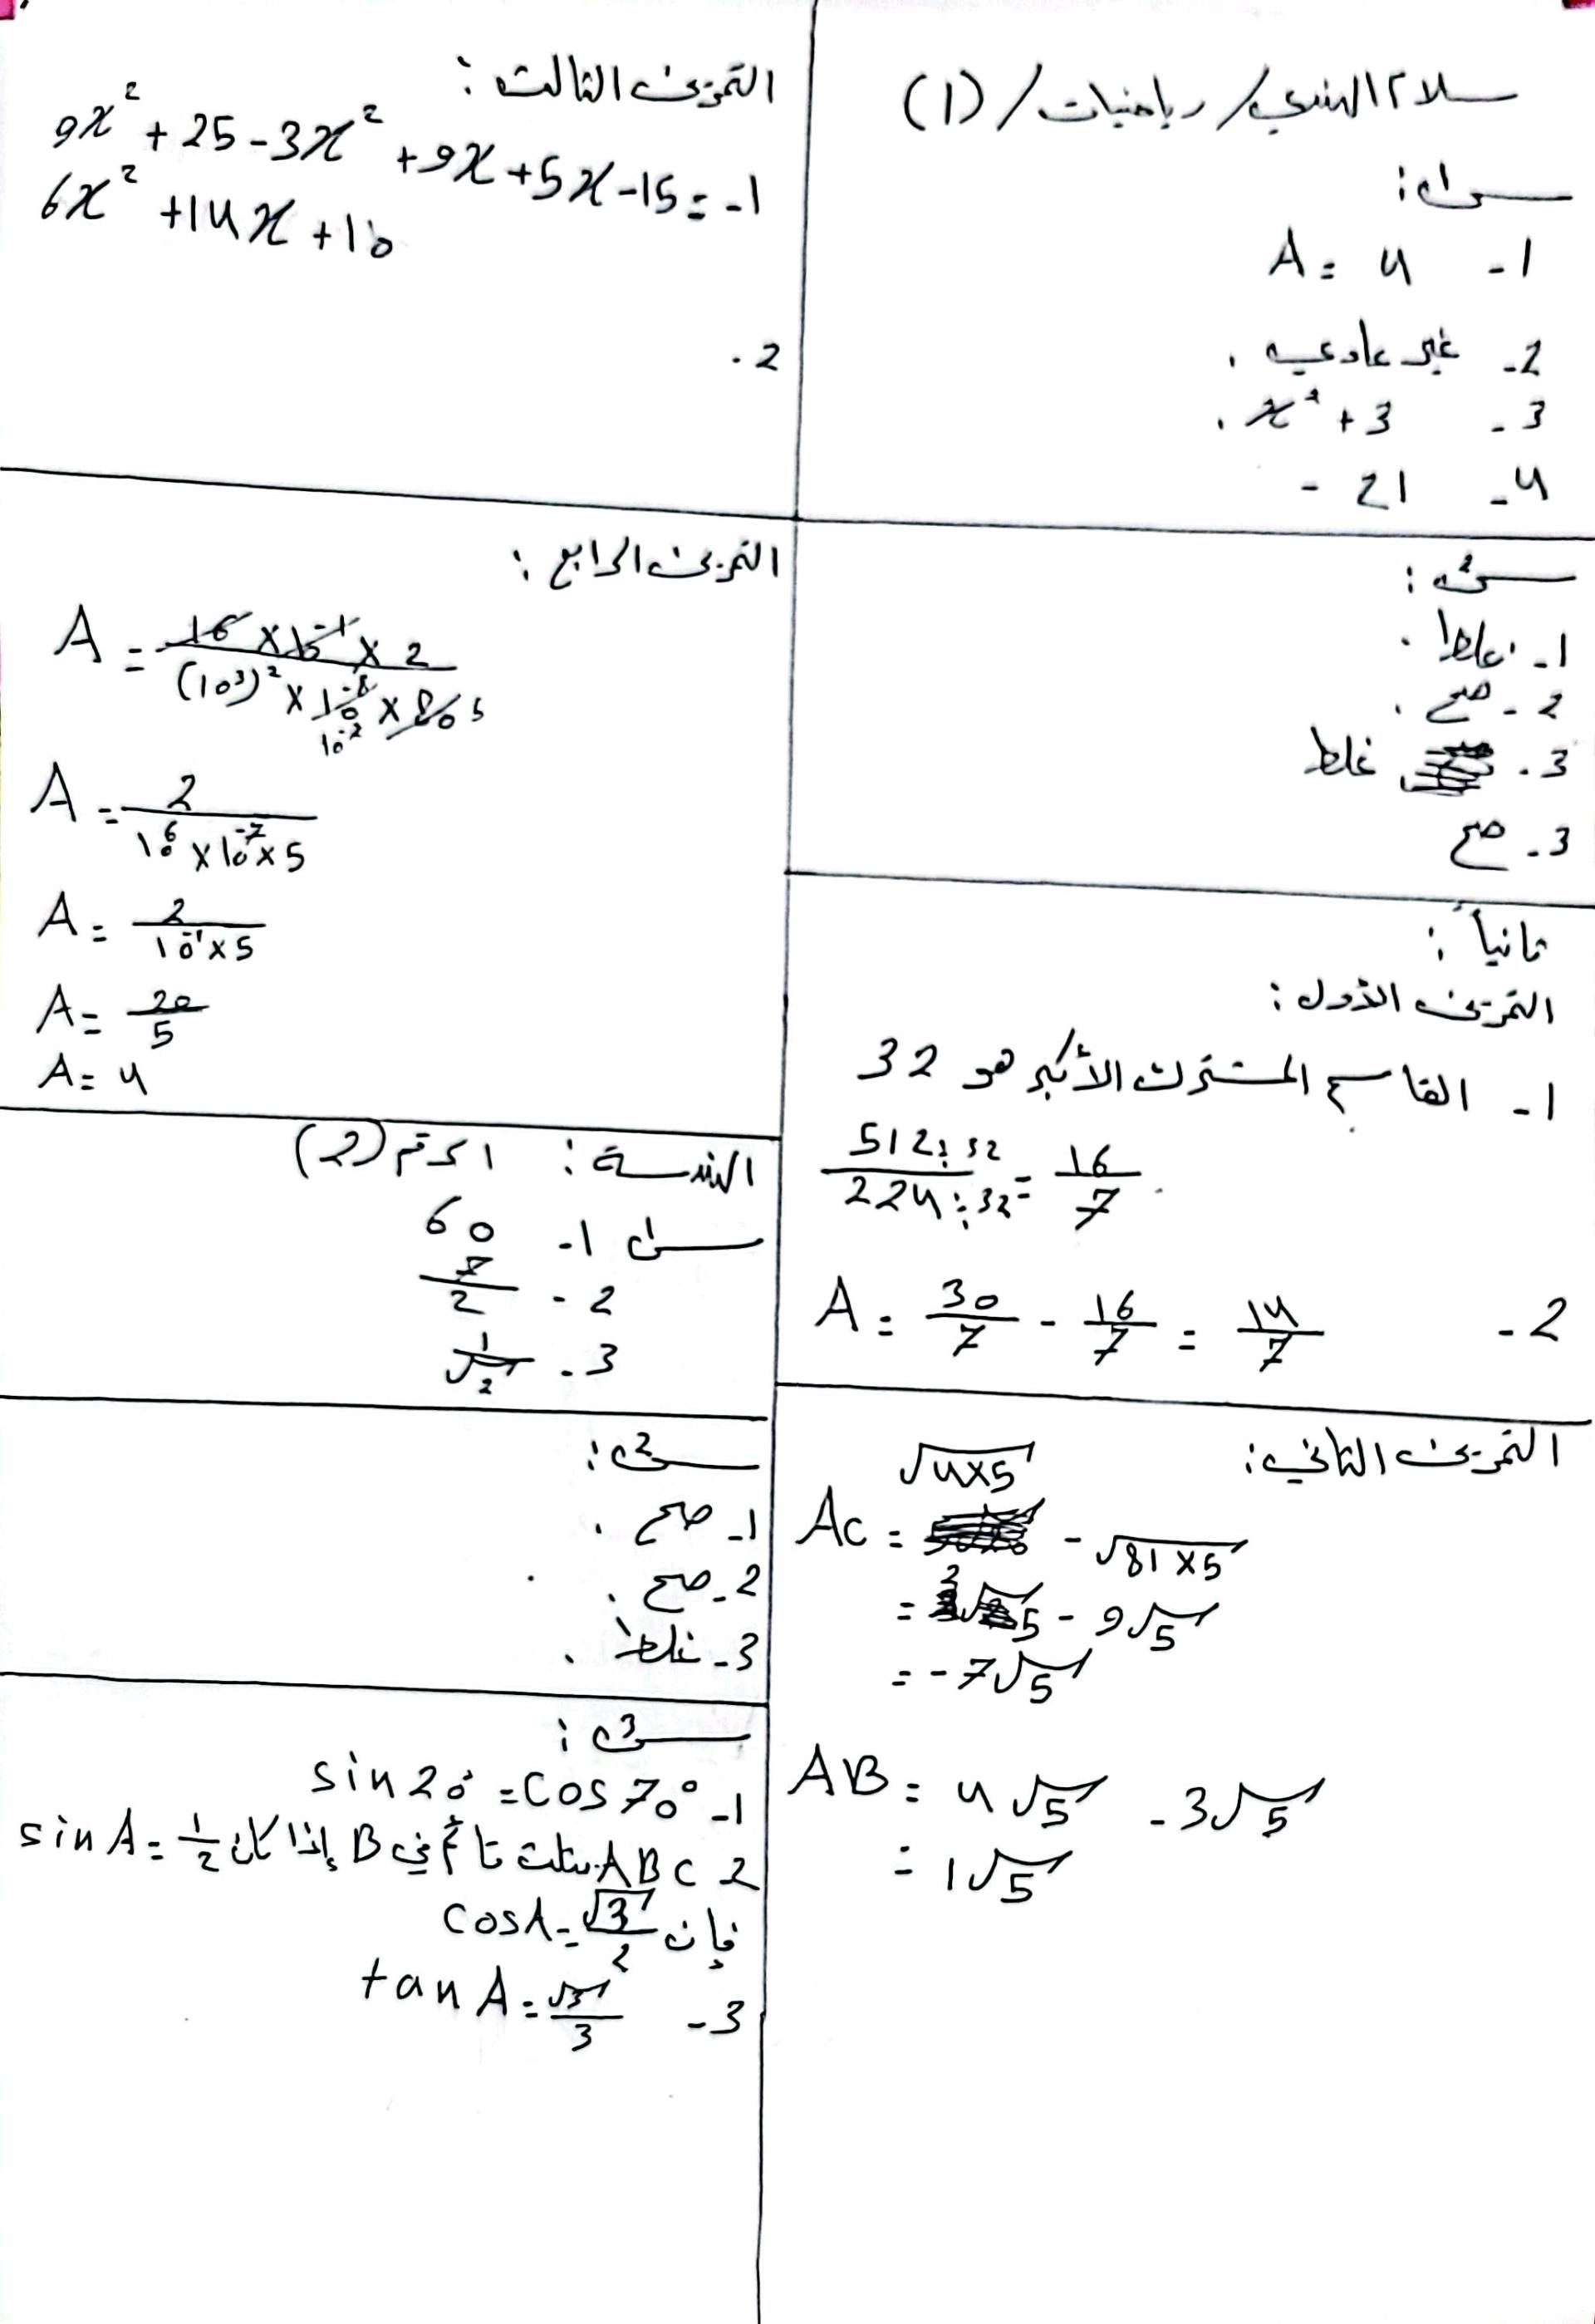 سلام الهندي / رياضيات / (1)
س1:
1- A = 4
2- غير عادي .
3- x² + 3 .
4- 21 -
س2:
1- غلط .
2- صح .
3- غلط
3- صح
ثانياً :
التمرين الأول :
1- القاسم المشترك الأكبر هو 32
512÷32 / 224÷32 = 16/7
2- A = 30/7 - 16/7 = 14/7
التمرين الثاني :
√4×5
AC = - √81×5
= 2√5 - 9√5
= -7√5
AB = 4√5 - 3√5
= 1√5
التمرين الثالث :
9x² + 25 - 3x² + 9x + 5x - 15 = -1
6x² + 14x + 10
2 .
التمرين الرابع :
A = 16 × 10⁻¹ × 2 / (10³)² × 10⁻⁸ × 80 5
10⁻⁷
A = 2 / 10⁶ × 10⁻⁷ × 5
A = 2 / 10⁻¹ × 5
A = 20/5
A = 4
الهندسة : الرقم (2)
س1 1- 60
2- 7/2
3- 1/√2
س2:
1- صح .
2- صح .
3- غلط .
س3 :
1- sin 20° = cos 70°
2 ABC مثلث قائم في B إذا كان sin A = 1/2
فإن cos A = √3/2
3- tan A = √3/3